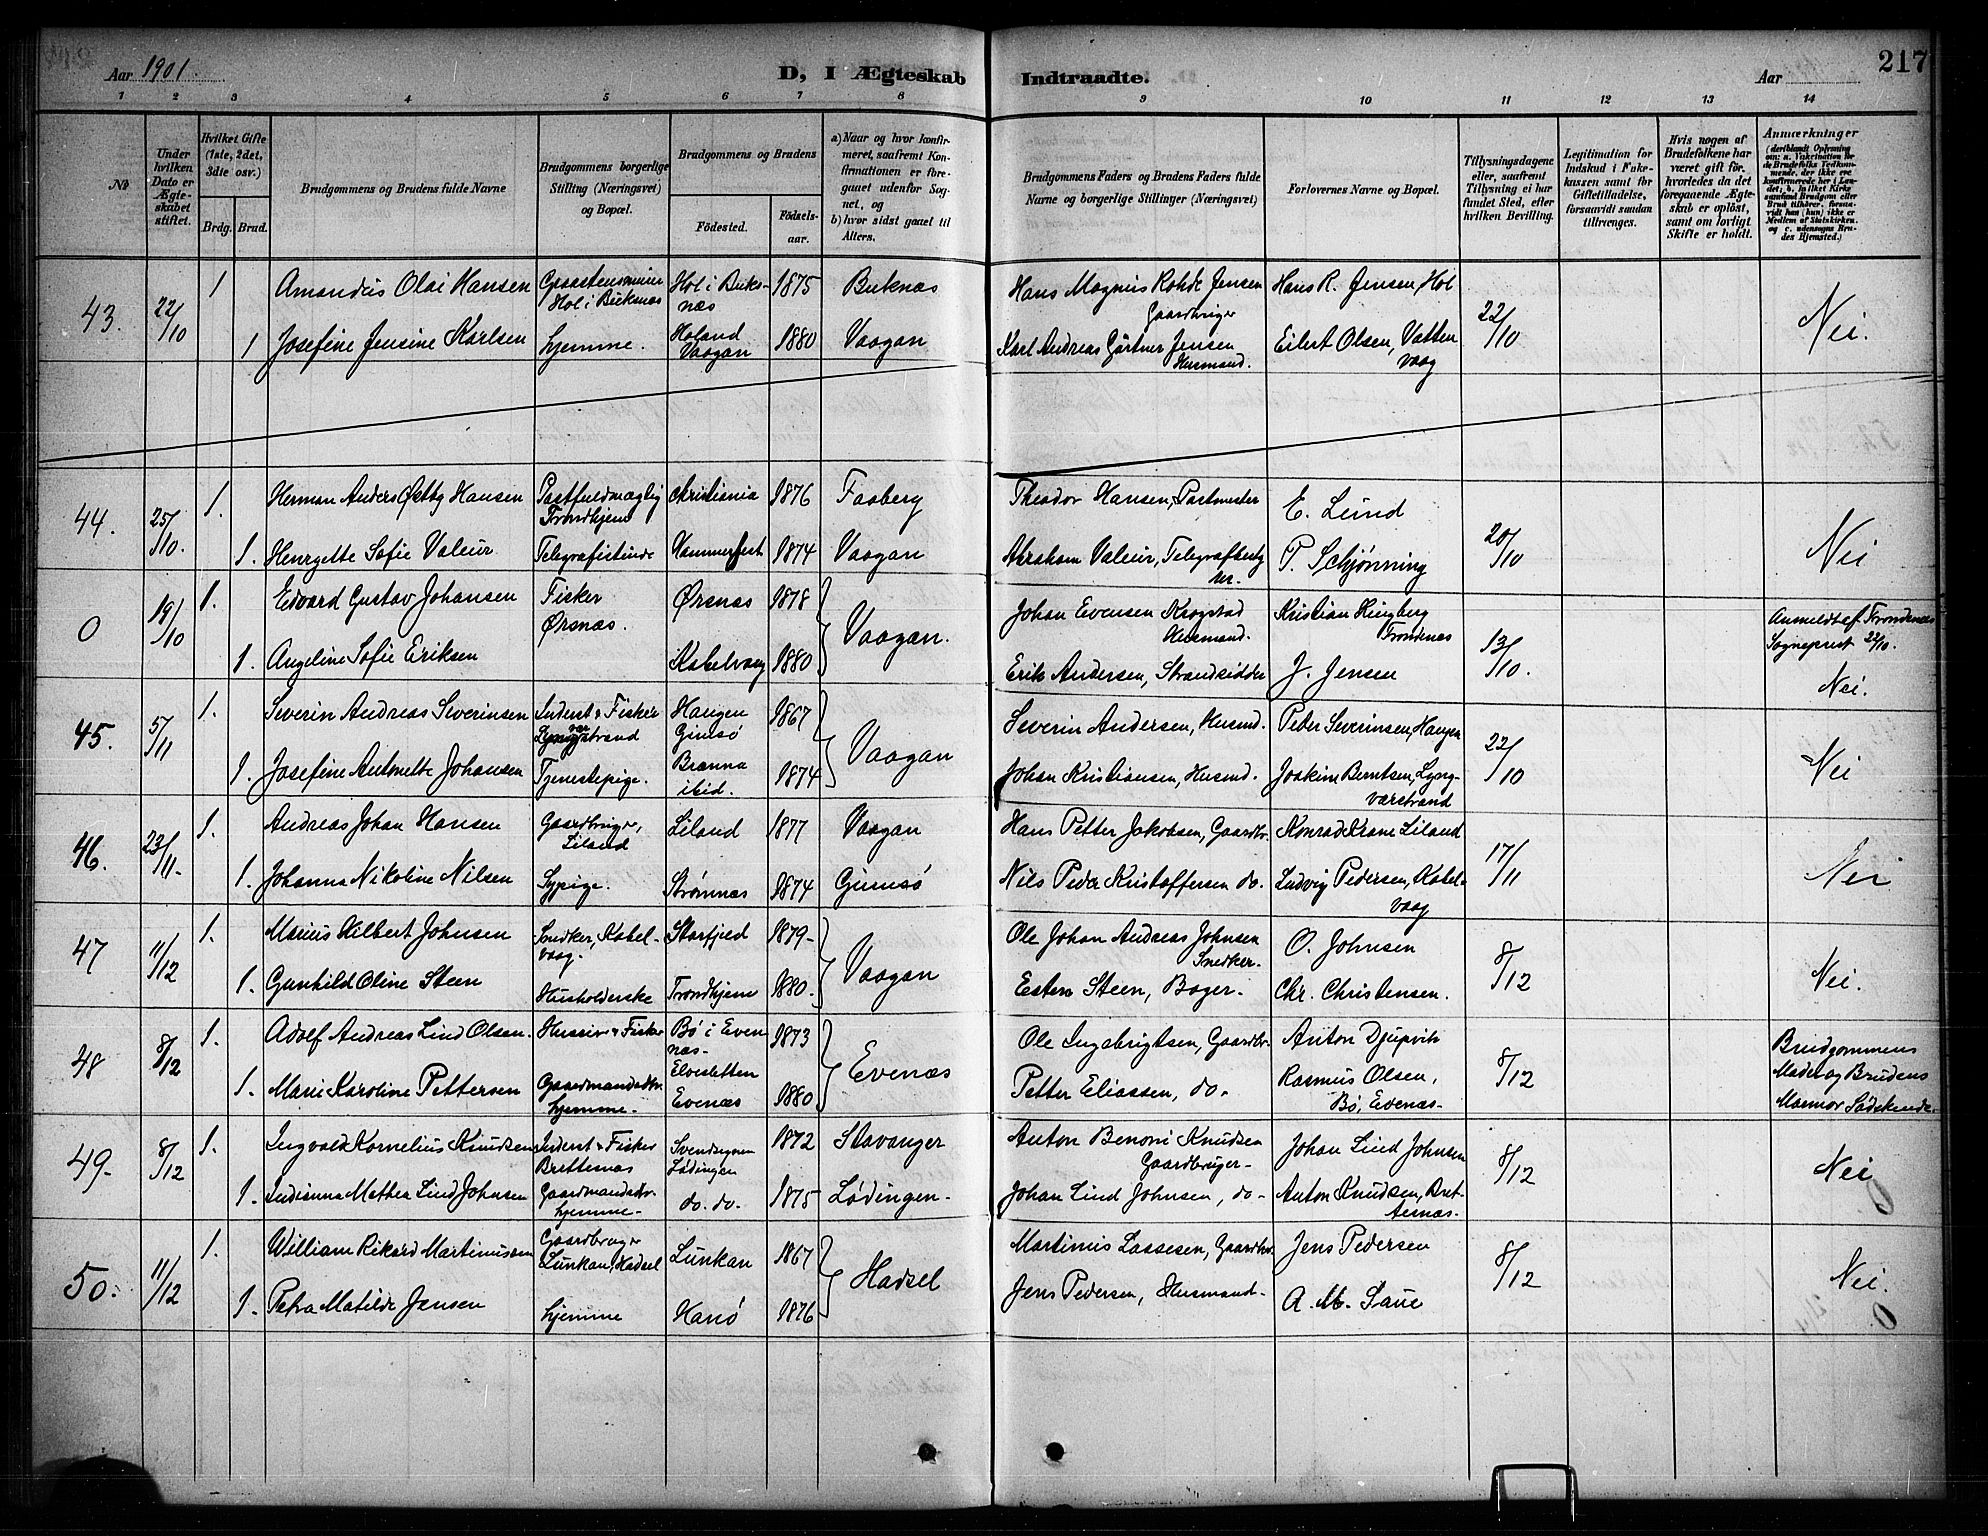 Aar 1901.
D, I Ægteskab Indtraadte.
Aar
217
1 2 3 4 5 6 7 8 9 10 11 12 13 14
No
Under hvilken Dato er Ægteskabet stiftet.
Hvilket Gifte (1ste, 2det, 3die osv.)
Brdg. Brud.
Brudgommens og Brudens fulde Navne
Brudgommens borgerlige Stilling (Næringsvei) og Bopæl.
Brudgommens og Brudens
Fødested.
Fødselsaar.
a) Naar og hvor konfirmeret, saafremt Konfirmationen er foregaaet udenfor Sognet, og
b) hvor sidst gaaet til Alters.
Brudgommens Faders og Brudens Faders fulde Navne og borgerlige Stillinger (Næringsvei)
Forlovernes Navne og Bopæl.
Tillysningsdagene eller, saafremt Tillysning ei har fundet Sted, efter hvilken Bevilling.
Legitimation for Indskud i Enkekassen samt for Giftetilladelse, forsaavidt saadan tiltrænges.
Hvis nogen af Brudefolkene har været gift før, hvorledes da det foregaaende Ægteskab er opløst, samt om lovligt Skifte er holdt.
Anmærkninger
43. 22/10 1 Amandus Olai Hansen Hol i Buknæs Hol i Buksnæs 1875 Buknæs Hans Magnus Rohde Jensen Gaardbruger Hans R. Jensen, Hol 22/10 Nei.
1 Josefine Jensine Karlsen hjemme. Holand Vaagan 1880 Vaagan Karl Andreas Gärtner Jensen Husmand. Eilert Olsen, Vattenvaag
44. 25/10. 1. Herman Anders Østby Hansen Postfuldmægtig Trondhjem Christiania 1876 Faaberg Theodor Hansen, Postmester E. Lund 20/10 Nei
1. Henryette Sofie Valeur Telegrafistinde Hammerfest 1874 Vaagan Abraham Valeur, Telegrafbestyr. P. Schjønning
0 19/10 1. Edvard Gustav Johansen Fisker Ørsnæs. Ørsnæs 1878 Vaagan. Johan Evensen Krogstad Husmand. Kristian Kingberg Trondenæs 13/10. Anmeldt af Trondenæs Sogneprest 22/10. Nei.
1. Angeline Sofie Eriksen Kabelvaag 1880 Erik Andersen, Strandsidder J. Jensen
45. 5/11 1. Severin Andreas Severinsen Inderst & Fisker Lyngværstrand Haugen Gimsø 1867 Vaagan Severin Andersen, Husmd. Peter Severinsen, Haugen 22/10 Nei
1. Josefine Antonette Johansen Tjenestepige. Brenna ibid. 1874 Johan Kristiansen, Husmd. Joakim Berntsen, Lyngværstrand
46. 23/11. 1. Andreas Johan Hansen Gaardbruger, Liland Liland 1877 Vaagan Hans Petter Jakobsen, Gaardbr. Konrad Krane Liland 17/11 Nei
1. Johanna Nikoline Nilsen Sypige. Strømnæs 1874 Gimsø Nils Peder Kristoffersen do. Ludvig Pedersen, Kabelvaag
47 11/12 1. Marius Hilbert Johnsen Snedker, Kabelvaag. Storfjeld 1879 Vaagan Ole Johan Andreas Johnsen Snedker. O. Johnsen 8/12 Nei.
1. Gunhild Oline Steen Husholderske Trondhjem 1880. Esten Steen, Bager. Chr. Christensen.
48 8/12 1. Adolf Andreas Lind Olsen. Bø i Evenæs. 1873 Evenæs Ole Ingebrigtsen, Gaardbr. Anton Djupvik 8/12 Brudgommens Moder og Brudens Mormor Sødskende.
1. Marie Karoline Pettersen Gaardmandsdtr. hjemme. Elvesletten Evenæs 1880 Petter Eliassen, do. Rasmus Olsen, Bø, Evenæs.
49. 8/12 1. Ingvald Kornelius Knudsen Inderst & Fisker Brettesnæs Lødingen 1872 Stavanger Anton Benoni Knudsen Gaardbruger. Johan Lind Johnsen 8/12 Nei
1. Indianna Mathea Lind Johnsen Gaardmandsdtr. hjemme. do. do. 1875 Lødingen. Johan Lind Johnsen, do. Anton Knudsen, Brettesnæs.
50. 11/12 1. William Rikard Martinussen Gaardbruger Lunkan, Hadsel Lunkan 1867 Hadsel Martinus Lassesen, Gaardbr. Jens Pedersen 8/12 Nei.
1. Petra Matilde Jensen hjemme Hanø 1876 Jens Pedersen, Husmand. A. M. Saue